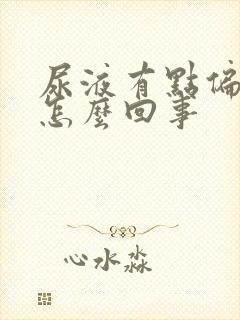 尿液有點偏
怎麼回事
心水淼